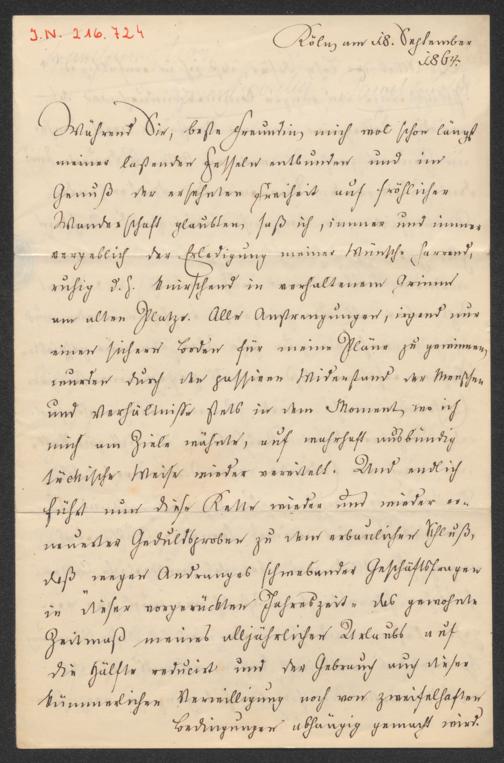 I.N. 216.724
Köln, am 18. September
1864.
Während Sie, beste Freundin, mich wol schon längst
meiner lastenden Fesseln entbunden und im
Genuß der ersehnten Freiheit auf fröhlicher
Wanderschaft glaubten, saß ich, immer und immer
vergeblich der Erledigung meiner Wünsche harrend,
ruhig d. h. knirschend in verhaltenem Grimm
am alten Platze. Alle Anstrengungen, irgend nur
einen sichern Boden für meine Pläne zu gewinnen,
wurden durch den passiven Widerstand der Menschen
und Verhältnisse stets in dem Moment, wo ich
mich am Ziele wähnte, auf wahrhaft ausbündig
tückische Weise wieder vereitelt. Und endlich
führt nun diese Kette wieder und wieder er-
neuerter Geduldsproben zu dem erbaulichen Schluß,
daß wegen Andranges schwebender Geschäftsfragen
in "dieser vorgerückten Jahreszeit" das gewohnte
Zeitmaß meines alljährlichen Urlaubs auf
die Hälfte reducirt und der Gebrauch auch dieser
kümmerlichen Verwilligung noch von zweifelhaften
Bedingungen abhängig gemacht wird.